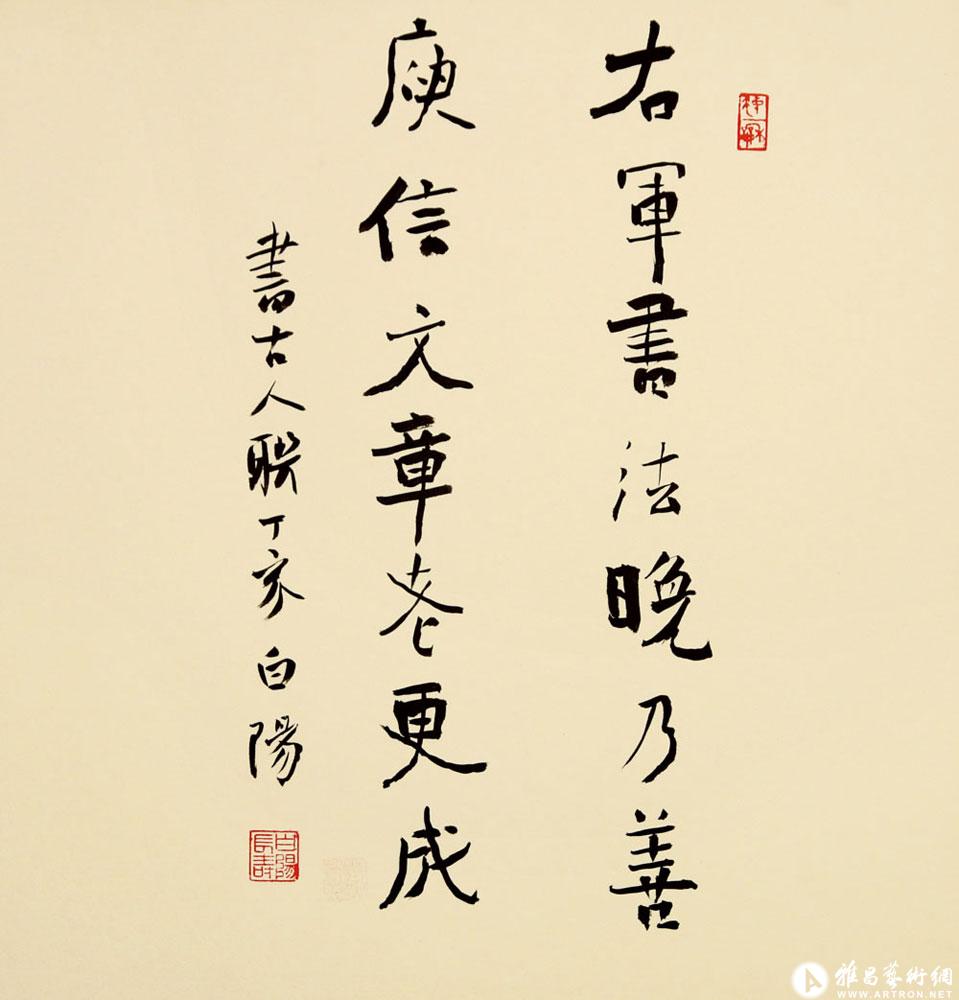 右軍書法晚乃善
庾信文章老更成
書古人聯丁亥白陽
白陽長壽
雅昌藝術網
WWW.ARTRON.NET